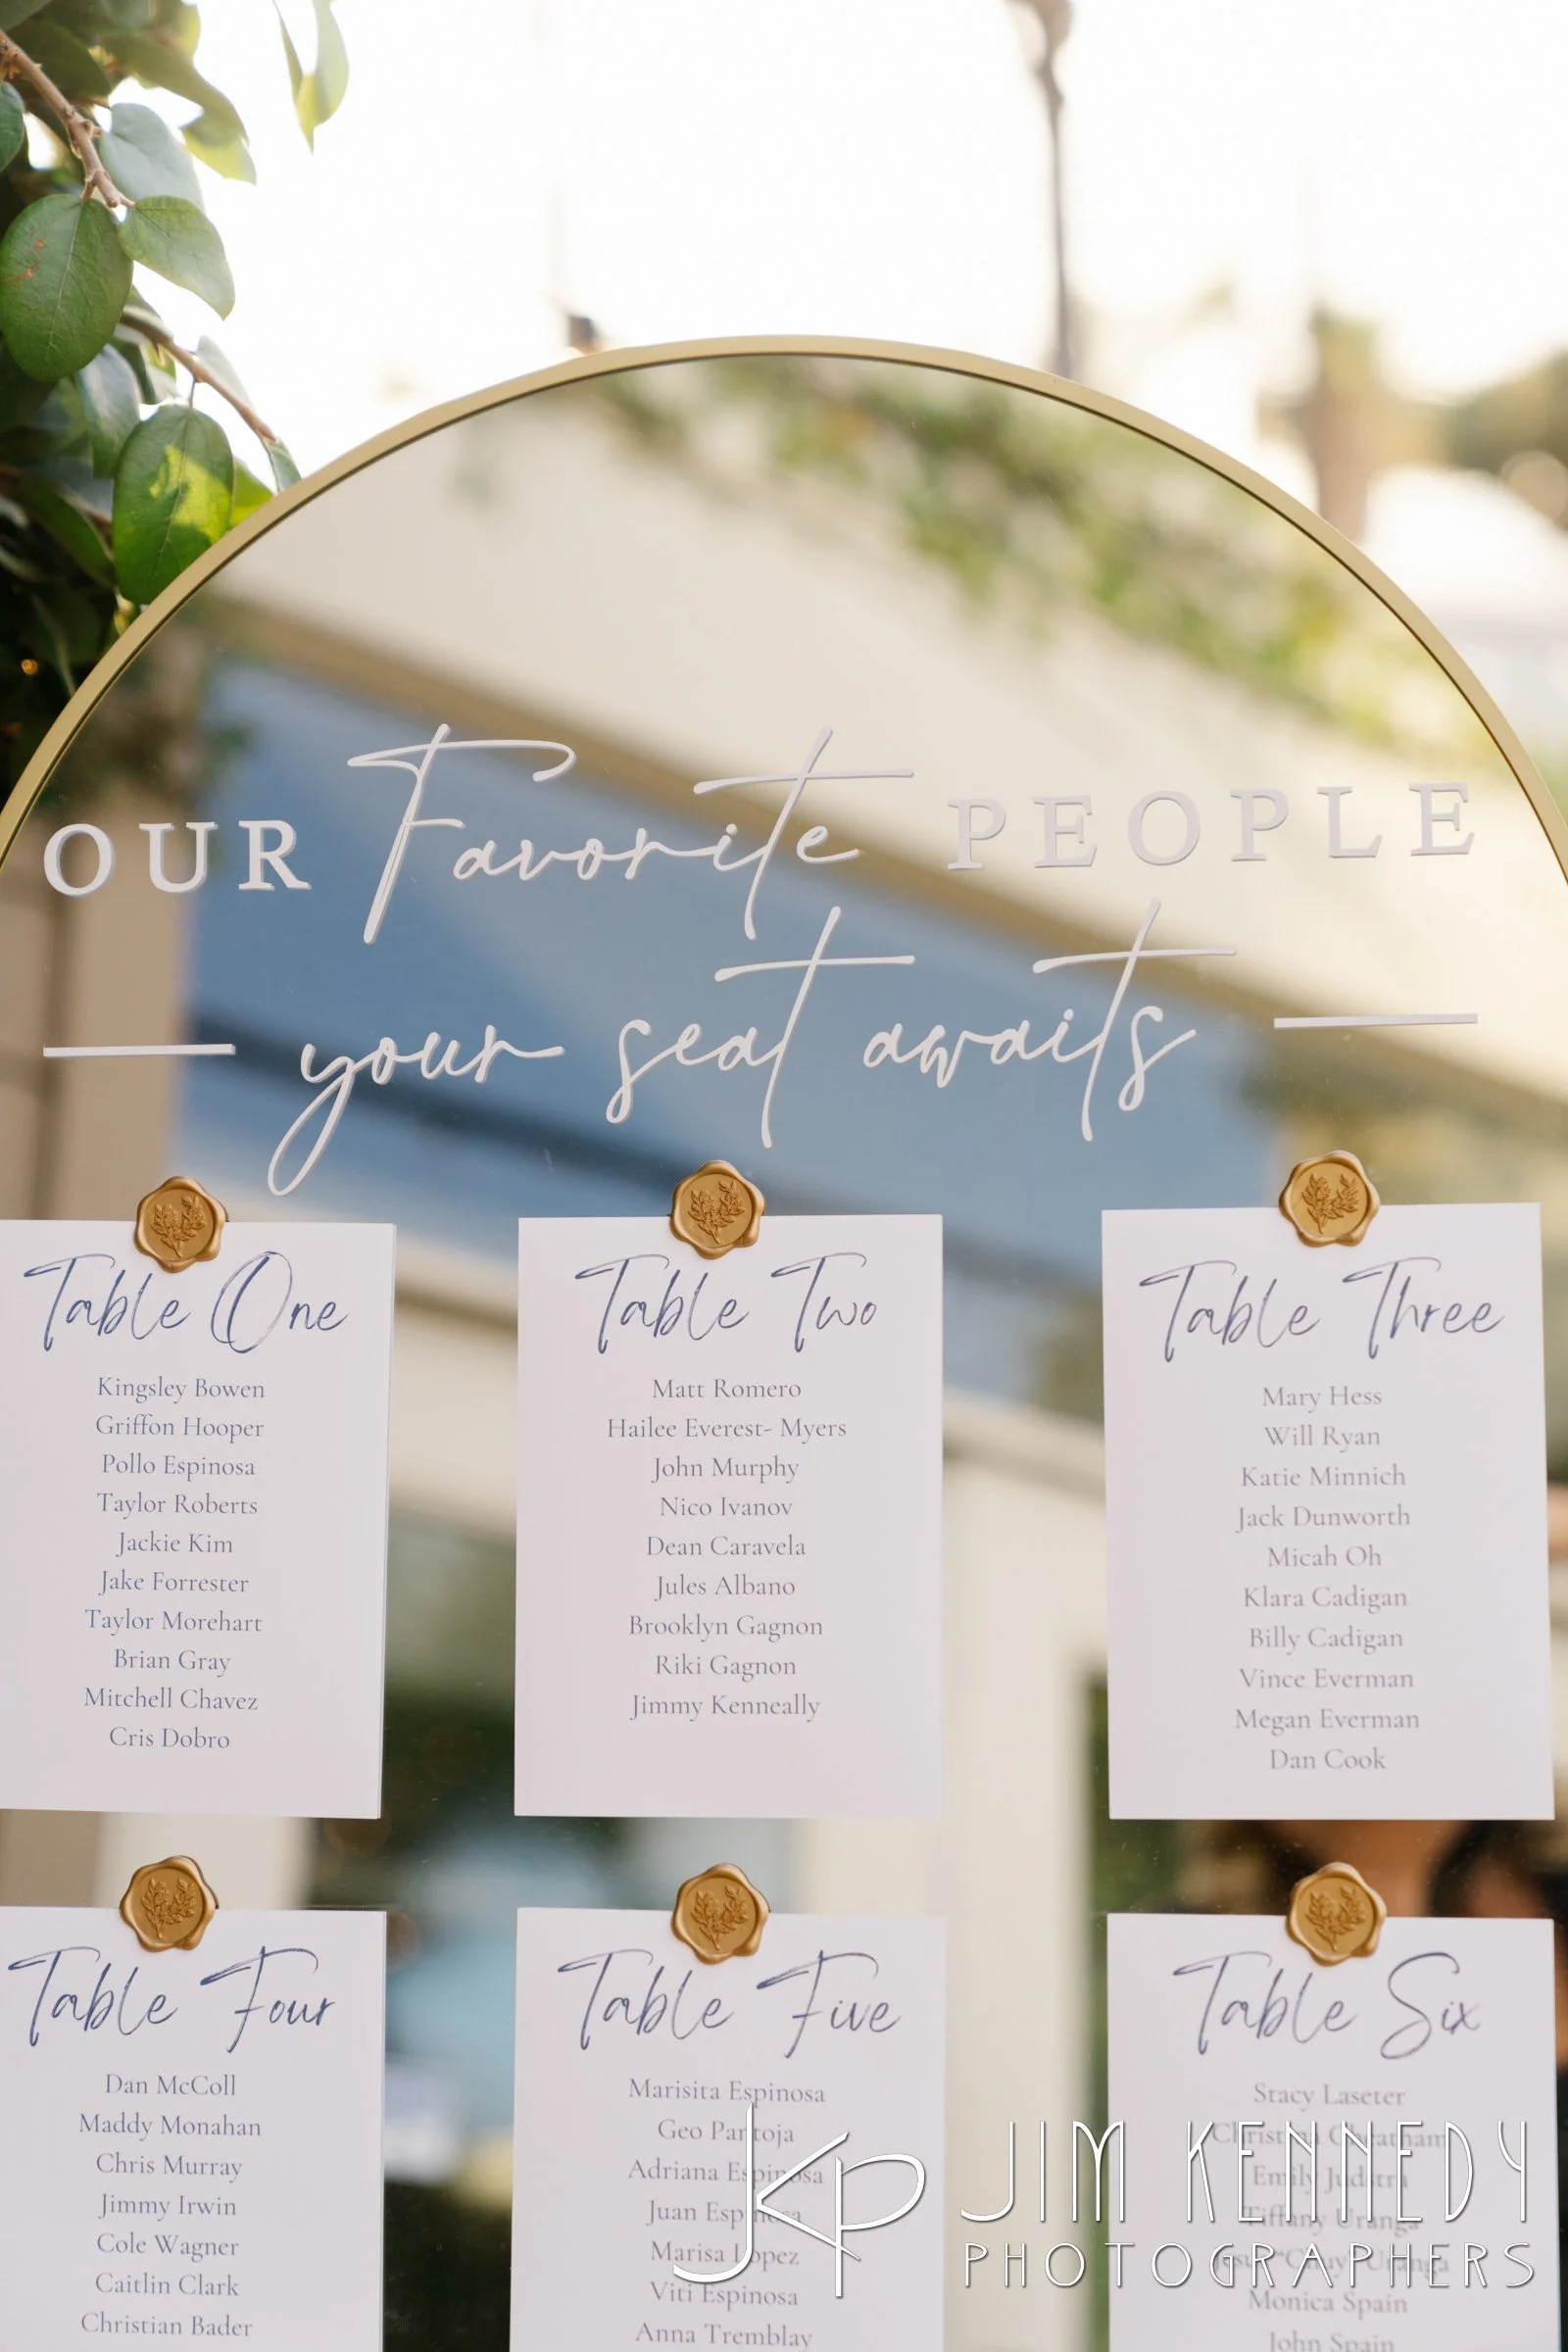 OUR Favorite PEOPLE
your seat awaits
Table One
Kingsley Bowen
Griffon Hooper
Pollo Espinosa
Taylor Roberts
Jackie Kim
Jake Forrester
Taylor Morehart
Brian Gray
Mitchell Chavez
Cris Dobro
Table Two
Matt Romero
Hailee Everest- Myers
John Murphy
Nico Ivanov
Dean Caravela
Jules Albano
Brooklyn Gagnon
Riki Gagnon
Jimmy Kenneally
Table Three
Mary Hess
Will Ryan
Katie Minnich
Jack Dunworth
Micah Oh
Klara Cadigan
Billy Cadigan
Vince Everman
Megan Everman
Dan Cook
Table Four
Dan McColl
Maddy Monahan
Chris Murray
Jimmy Irwin
Cole Wagner
Caitlin Clark
Christian Bader
Table Five
Marisita Espinosa
Geo Pantoja
Adriana Espinosa
Juan Espinosa
Marisa Lopez
Viti Espinosa
Anna Tremblay
Table Six
Stacy Laseter
Emily
Tiffany Uranga
"Chuy" Uranga
Monica Spain
John Spain
JKP JIM KENNEDY
PHOTOGRAPHERS